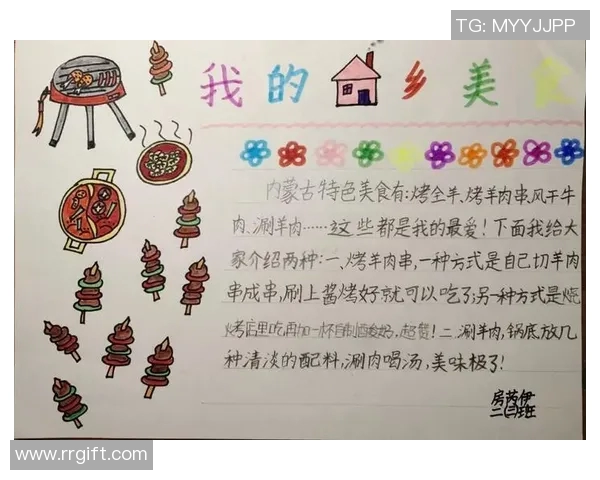 TG: MYYJJPP
我的乡美食
内蒙古特色美食有:烤全羊、烤羊肉串、风干牛
肉、涮羊肉……这些都是我的最爱!下面我给大
家介绍两种:一、烤羊肉串,一种方式是自己切羊肉
串成串,刷上酱烤好就可以吃了;另一种方式是烧
烤店里吃再加一杯自制酸奶,超赞!二、涮羊肉,锅底放几
种清淡的配料,涮肉喝汤,美味极了!
房芮伊
二(三)班
www.rrgift.com